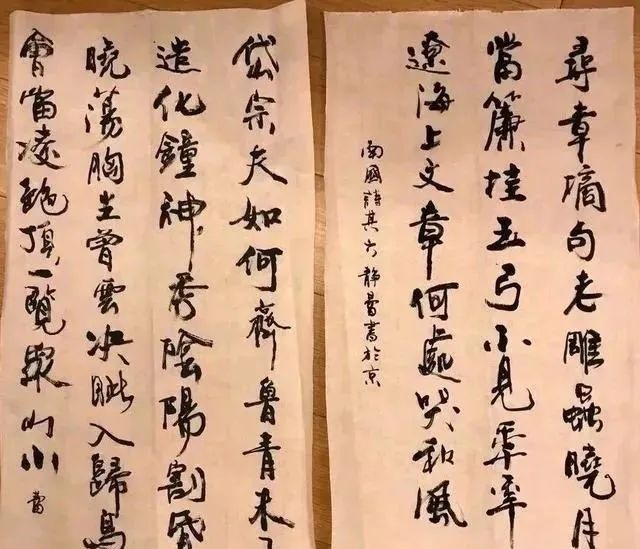 尋章摘句老雕蟲曉月
當簾挂玉弓不見年年
遼海上文章何處哭秋風
南國詩其六 靜曼書於京
岱宗夫如何齊魯青未了
造化鐘神秀陰陽割昏
曉蕩胸生曾雲決眥入歸鳥
會當凌絕頂一覽眾山小